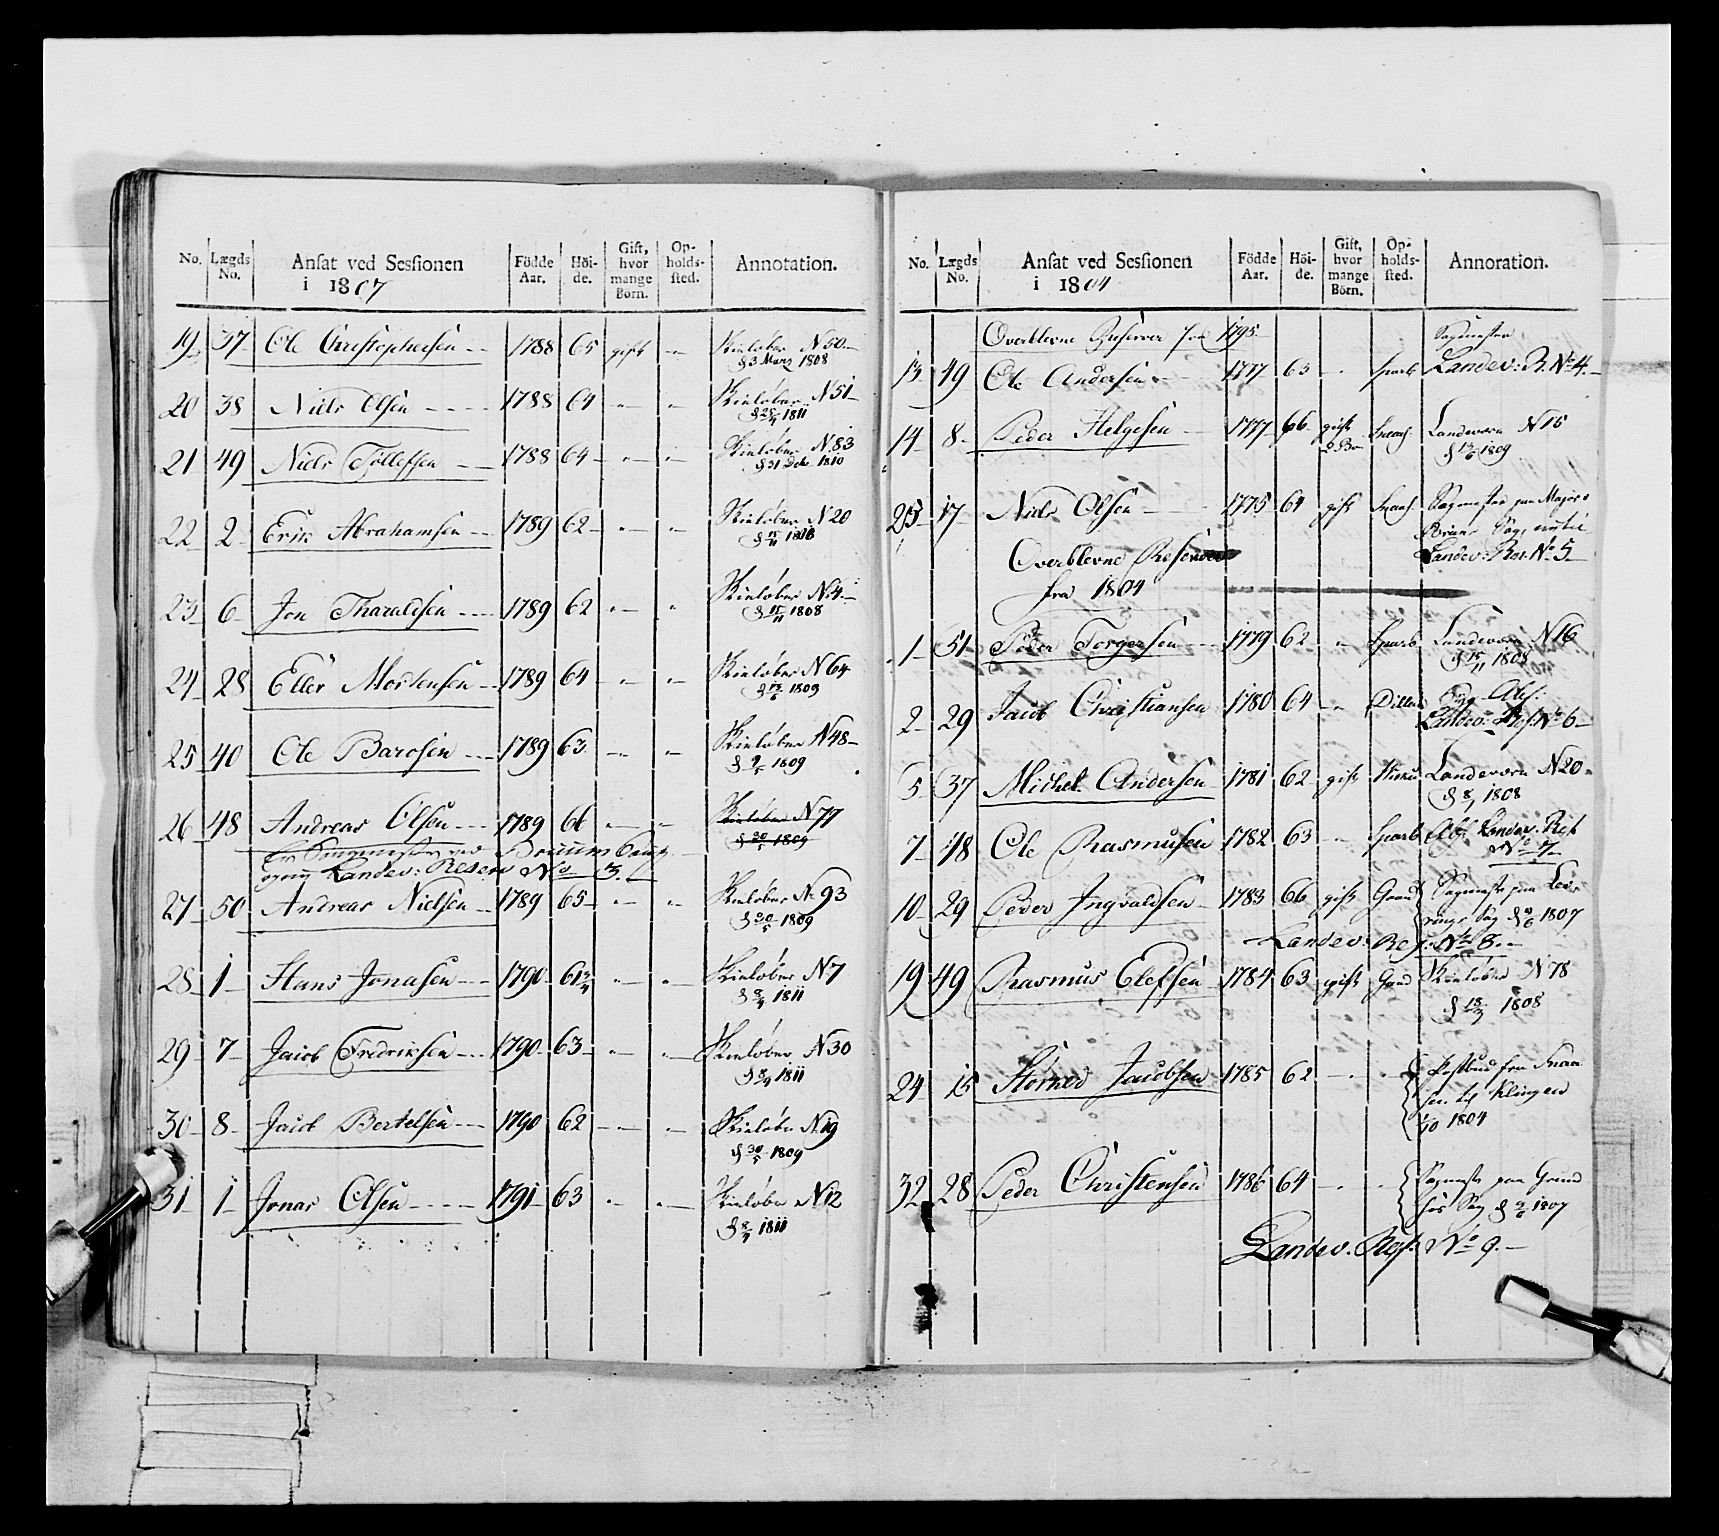 No. Lægds No. Ansat ved Sessionen i 1807 Födde Aar. Höi-de. Gift, hvor mange Börn. Op-holds-sted. Annotation.
19 37 Ole Christophersen 1788 65 gift Skieløber N 50
d 3 Marz 1808
20 38 Niels Olsen 1788 64 Skieløber N 51
1811
21 49 Niels Tollefsen 1788 64 Skieløber N. 83
d 31 Dcbr 1810
22 2 Erik Abrahamsen 1789 62 Skieløber N 20
d 15/11 1808
23 6 Jon Tharaldsen 1789 62 Skieløber N. 4
d 15/11 1808
24 28 Eller Mortensen 1789 64 Skieløber N 64
1809
25 40 Ole Barosen 1789 63 Skieløber N 48
1809
26 48 Andreas Olsen 1789 66 Skieløber N 77
d 30/5 1809
Landev: Reserv No 3.
27 50 Andreas Nielsen 1789 65 Skieløber N. 93
d 30/5 1809
28 1 Hans Jonasen 1790 61 3/4 Skieløber N 7
1811
29 7 Jacob Fredriksen 1790 63 Skieløber N 30
1811
30 8 Jacob Bertelsen 1790 62 Skieløber N. 19
d 30/5 1809
31 1 Jonas Olsen 1791 63 Skieløber N 12
1811
No. Lægds No. Ansat ved Sessionen i 1804 Födde Aar. Höi-de. Gift, hvor mange Börn. Op-holds-sted. Annoration.
Overblevne Reserver fra 1795
Sagmester
13 49 Ole Andersen 1777 63 Sparb Landev: R. No 4.
14 8 Peder Helgesen 1777 66 gift 2 Bø Snaas. Landeværn N 15
1809
25 17 Niels Olsen 1775 64 gift Snaas. Sagmester paa Major
Sag,
Landev: Res. No 5
Overblevne Reserver
fra 1804
1 51 Peder Torgersen 1779 62 Sparb Landeværn N 16
d 15/11 1808
2 29 Jacob Christiansen 1780 64
Landev: Res. No 6
5 37 Michel Andersen 1781 62 gift Landeværn N 20
1808
7 48 Ole Rasmusen 1782 63 Sparb Landev. Res
No 7
10 29 Peder Ingvaldsen 1783 66 gift Sagmester paa Lev
Sag 1807
Landev: Res: No 8.
19 49 Rasmus Elefsen 1784 63 gift Skieløber N 78
1808
24 15 Størker Jacobsen 1785 62 Postbud fra Snaa
sen til Klingen
1804
32 28 Peder Christensen 1786 64 Sagmester paa
Sag 1807
Landev. Res: No 9.